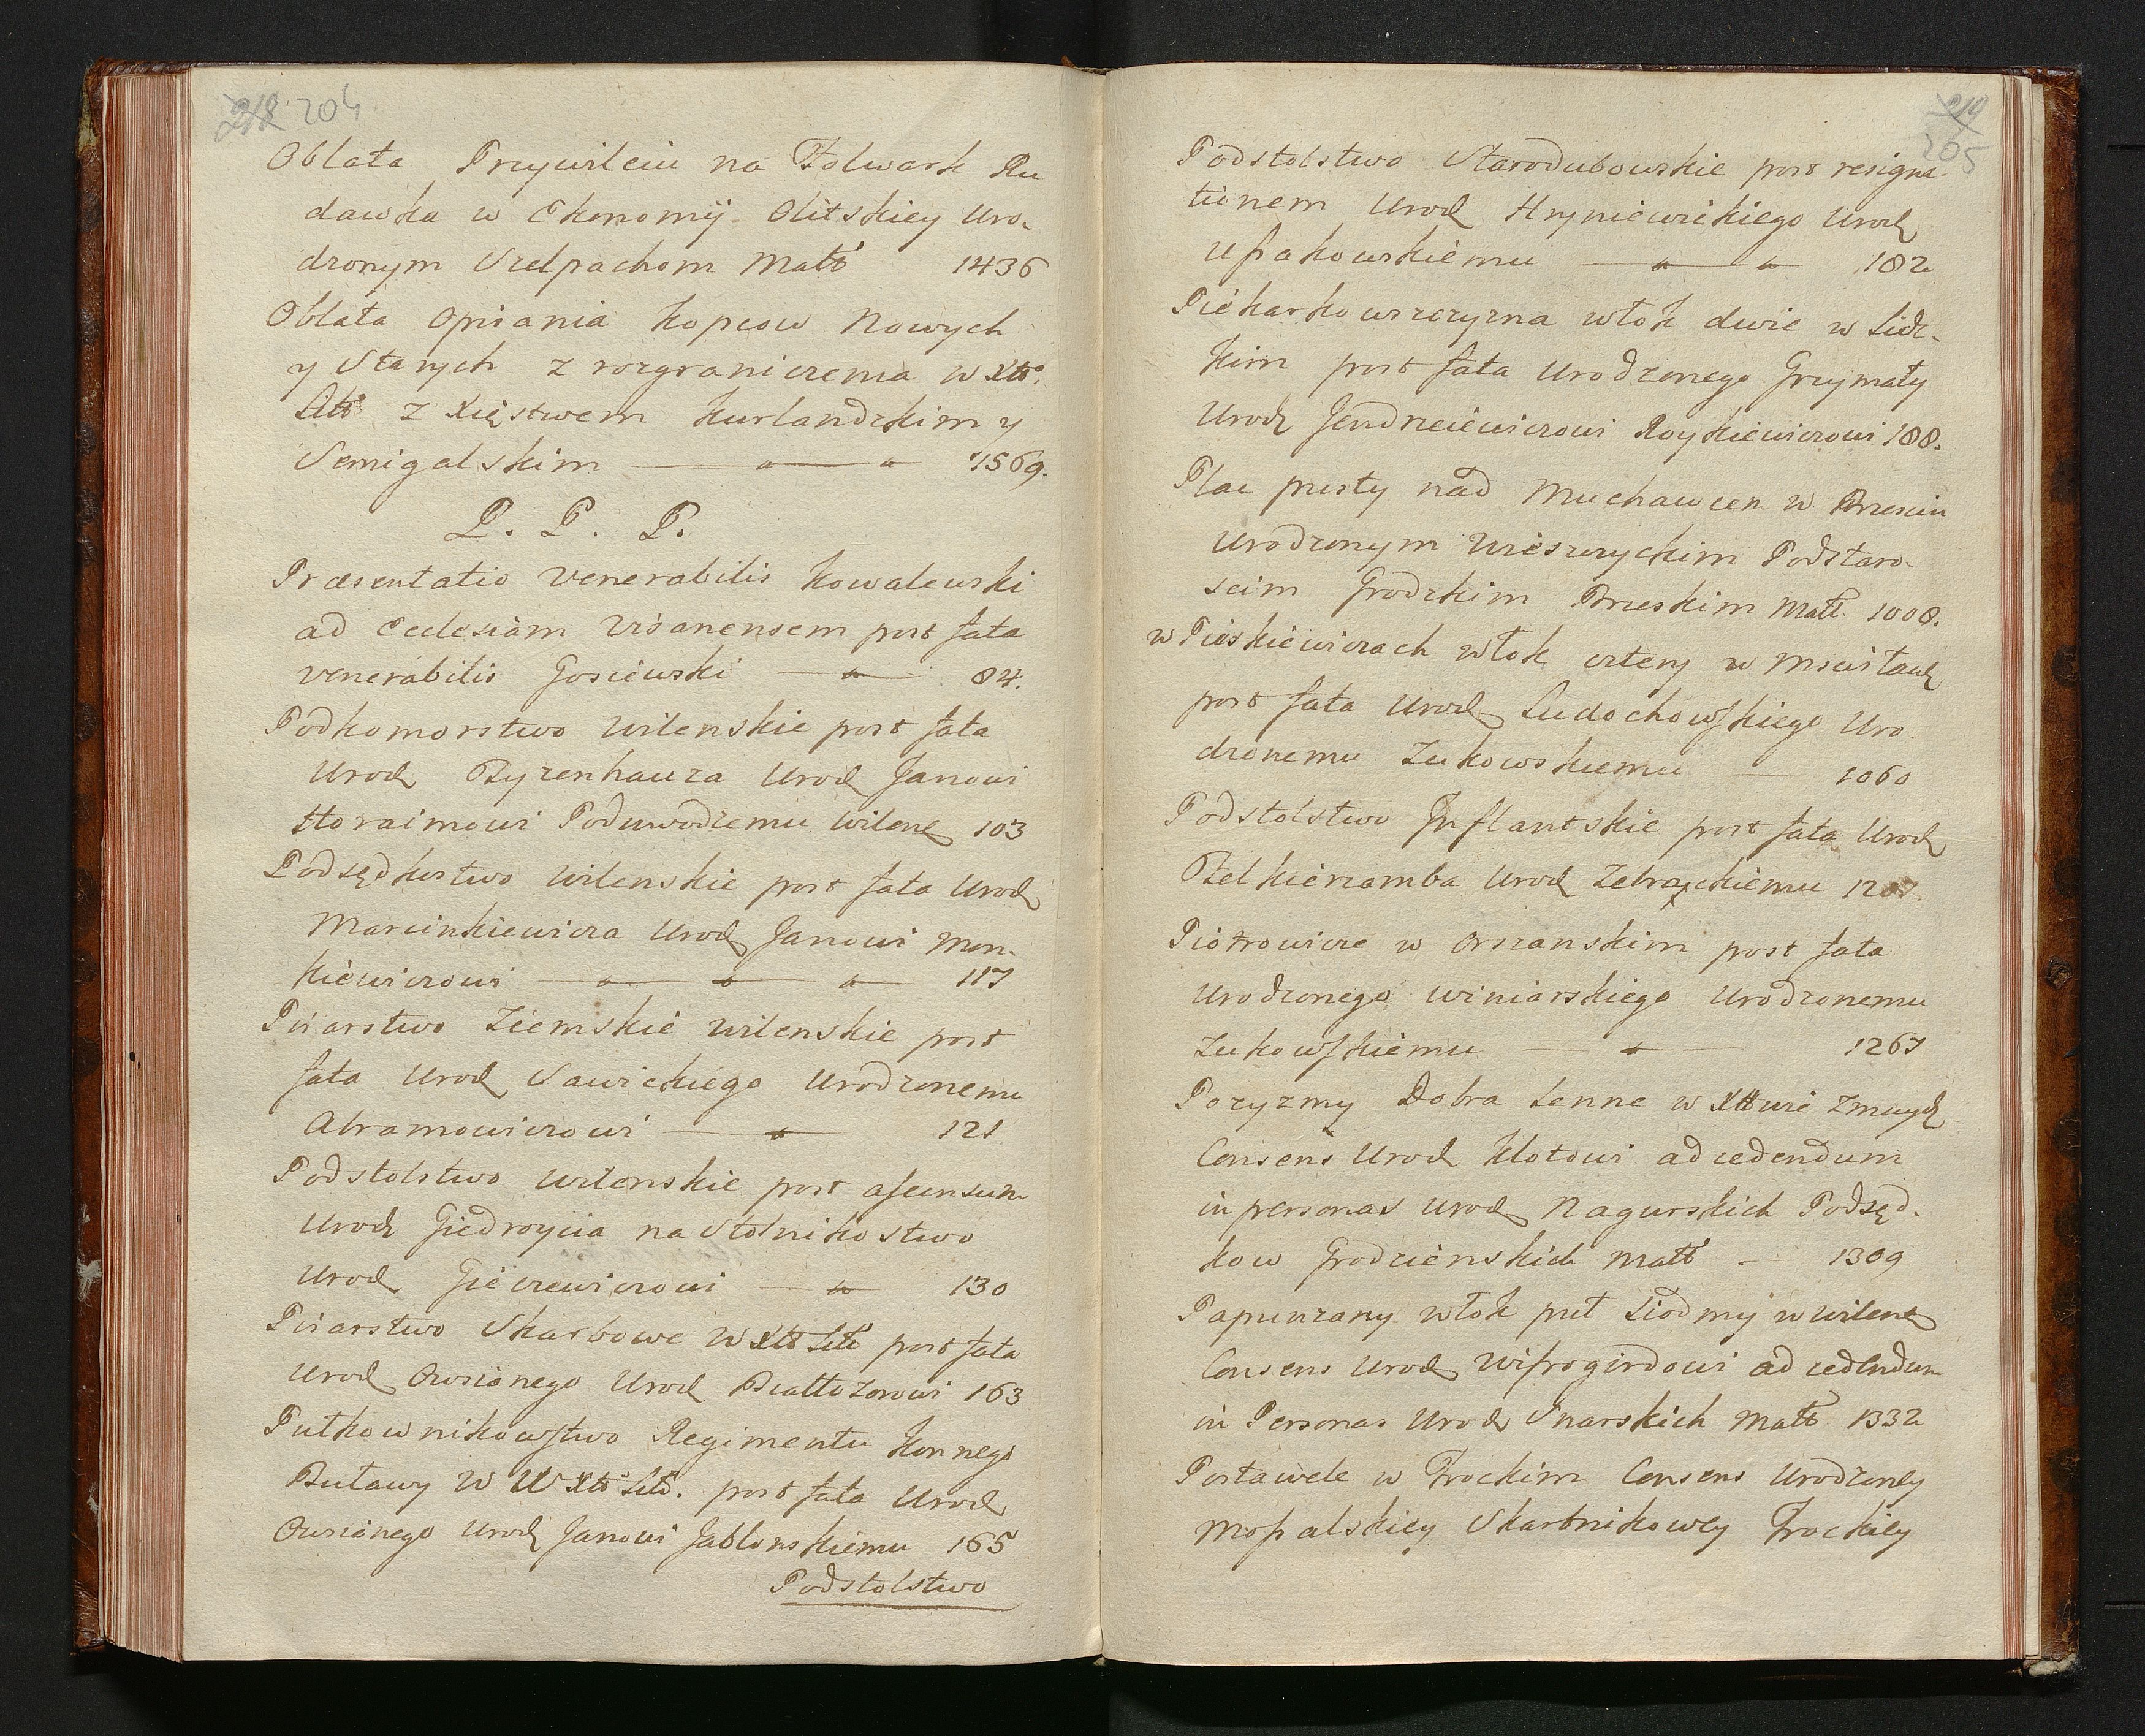 218 204
Oblata Przywileiu na Folwark Ru
dawka w Ekonomij Olitskiey Uro-
dzonym Szelpachom Małż 1436
Oblata Opisania Kopcow Nowych
y Starych z rozgraniczenia w Xtt.
Litt z Xięstwem Kurlandzkim y
Semigalskim 1569.
P. P. P.
Præsentatio Venerabilis Kowalewski
ad Eclesiam Visanensem post fata
venerabilis Gosiewski 84.
Podkomorstwo Wilenskie post fata
Urod Tyzenhauza Urod Janowi
Horaimowi Podwodzemu Wilenẽ 103
Podsędkostwo Wilenskie post fata Urod
Marcinkiewicza Urod Janowi Mon-
kiewiczowi 117
Pisarstwo Ziemskie Wilenskie post
fata Urod Sawickiego Urodzonemu
Abramowiczowi 121
Podstolstwo Wilenskie post ascensum
Urodz Giedroycia na Stolnikostwo
Urod Gieczewiczowi 130
Pisarstwo Skarbowe W Xtt Litt post fata
Urod Owsianego Urod Białłozorowi 163
Pułkownikowstwo Regimentu Konnego
Buławy W W Xtt Litt. post fata Urod
Owsianego Urodz Janowi Jabłonskiemu 165
Podstolstwo
219
205
Podstolstwo Starodubowskie post resigna-
tionem Urod Hryniewickiego Urodz
Ussakowskiemu 182
Piekarkowszczyzna włok dwie w Lidz-
kim post fata Urodzonego Grzymały
Urodz Jendrzeiewiczowi Roykiewiczowi 188.
Plac pusty nad Muchawcem w Brzesciu
Urodzonym Wieszczyckim Podstaro-
scim Grodzkim Brzeskim Małż. 1008.
w Pieskiewiczach włok cztery w Mscisławz
post fata Urod Ludochowskiego Uro-
dzonemu Zukowskiemu 1060
Podstolstwo Inflantskie post fata Urodz
Felkierzamba Urod Zebrackiemu 1207
Piotrowicze w Orszanskim post fata
Urodzonego Winiarskiego Urodzonemu
Zukowskiemu 1267
Pozyzmy Dobra Lenne w Xttwie Zmuydz
Consens Urod Klotowi ad cedendum
in personas Urod Nagurskich Podsęd-
kow Grodzienskich Małż 1309
Papuszany włok puł Siodmy w Wilenẽ
Consens Urod Wissogirdowi ad cedendum
in Personas Urod Snarskich Małż 1332
Postawele w Trockim Consens Urodzoney
Mossalskiey Skarbnikowey Trockiey